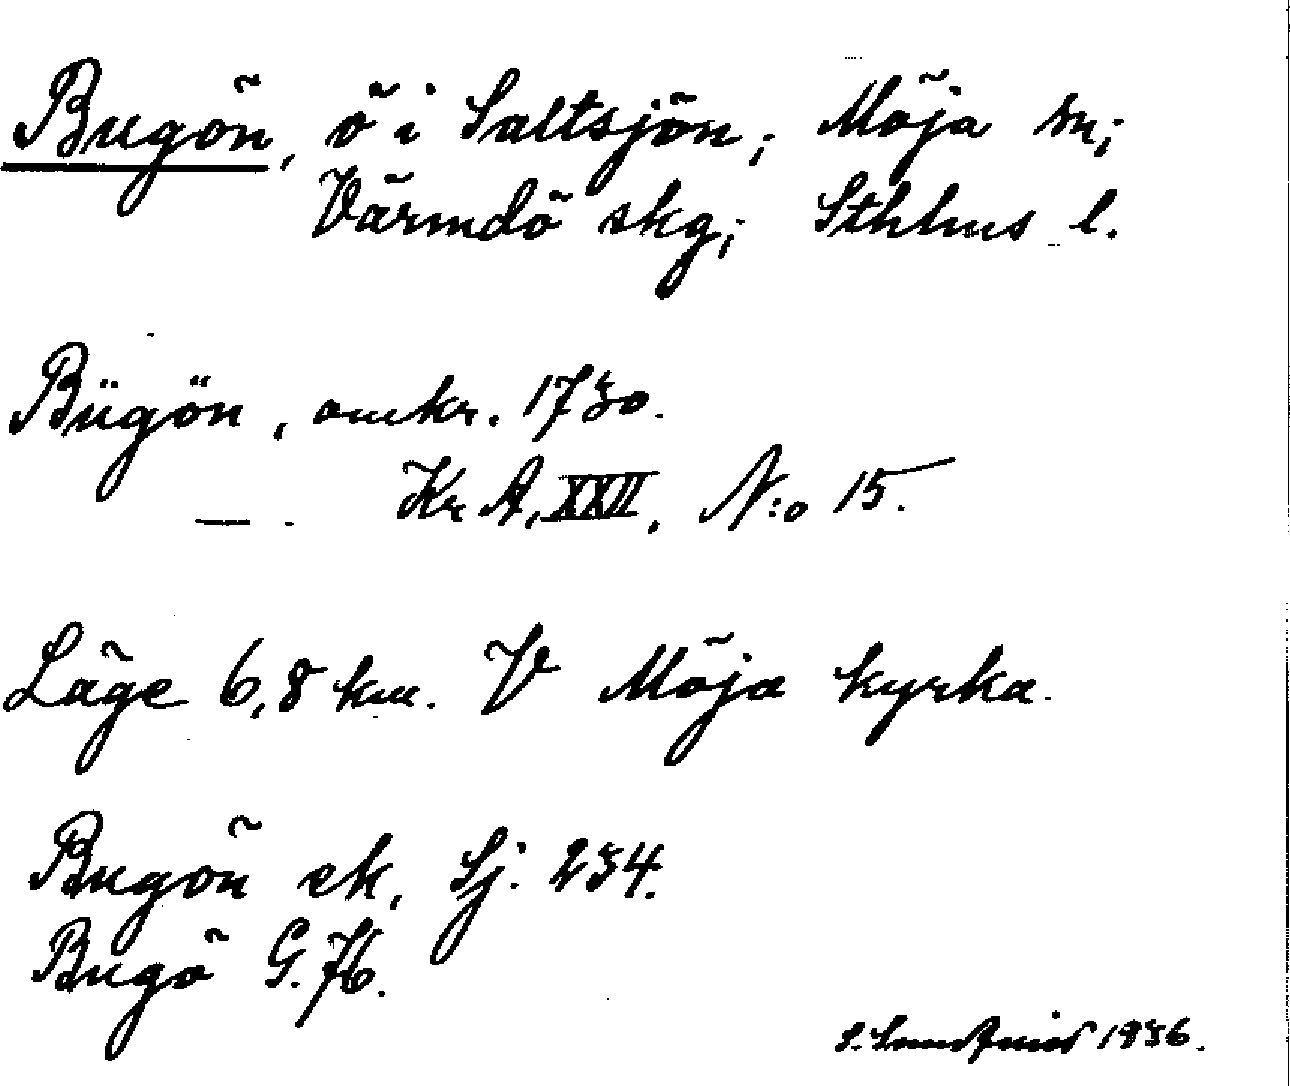 Bugön, ö i Saltsjön; Möja sn;
Värmdö skg; Sthlms l.
Bügön, omkr. 1730.
— . Kr A, XXII, N:o 15.
Läge 6,8 km. V Möja kyrka.
Bugön ek, Sj. 234.
Bugö G. 76.
1936.